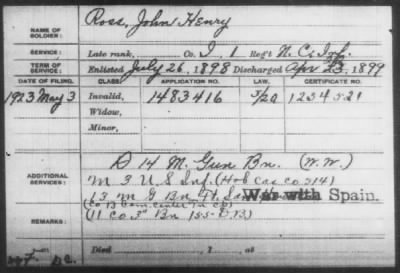 NAME OF SOLDIER: Ross, John Henry
SERVICE: Late rank, Co. I, 1 Reg't N.C. Inf.
TERM OF SERVICE: Enlisted July 26, 1898 Discharged Apr 23, 1899
DATE OF FILING. CLASS. APPLICATION NO. CERTIFICATE NO.
1923 May 3 Invalid, 1483416 1234521
Widow,
Minor,
D 14 M. Gun Bn. (W.W.)
ADDITIONAL SERVICES: M 3 U S Inf. (Hob Cas. Co. 214)
13 M G Bn War with Spain.
REMARKS: (11 Co 3" Bn 155
Died , 1 , at